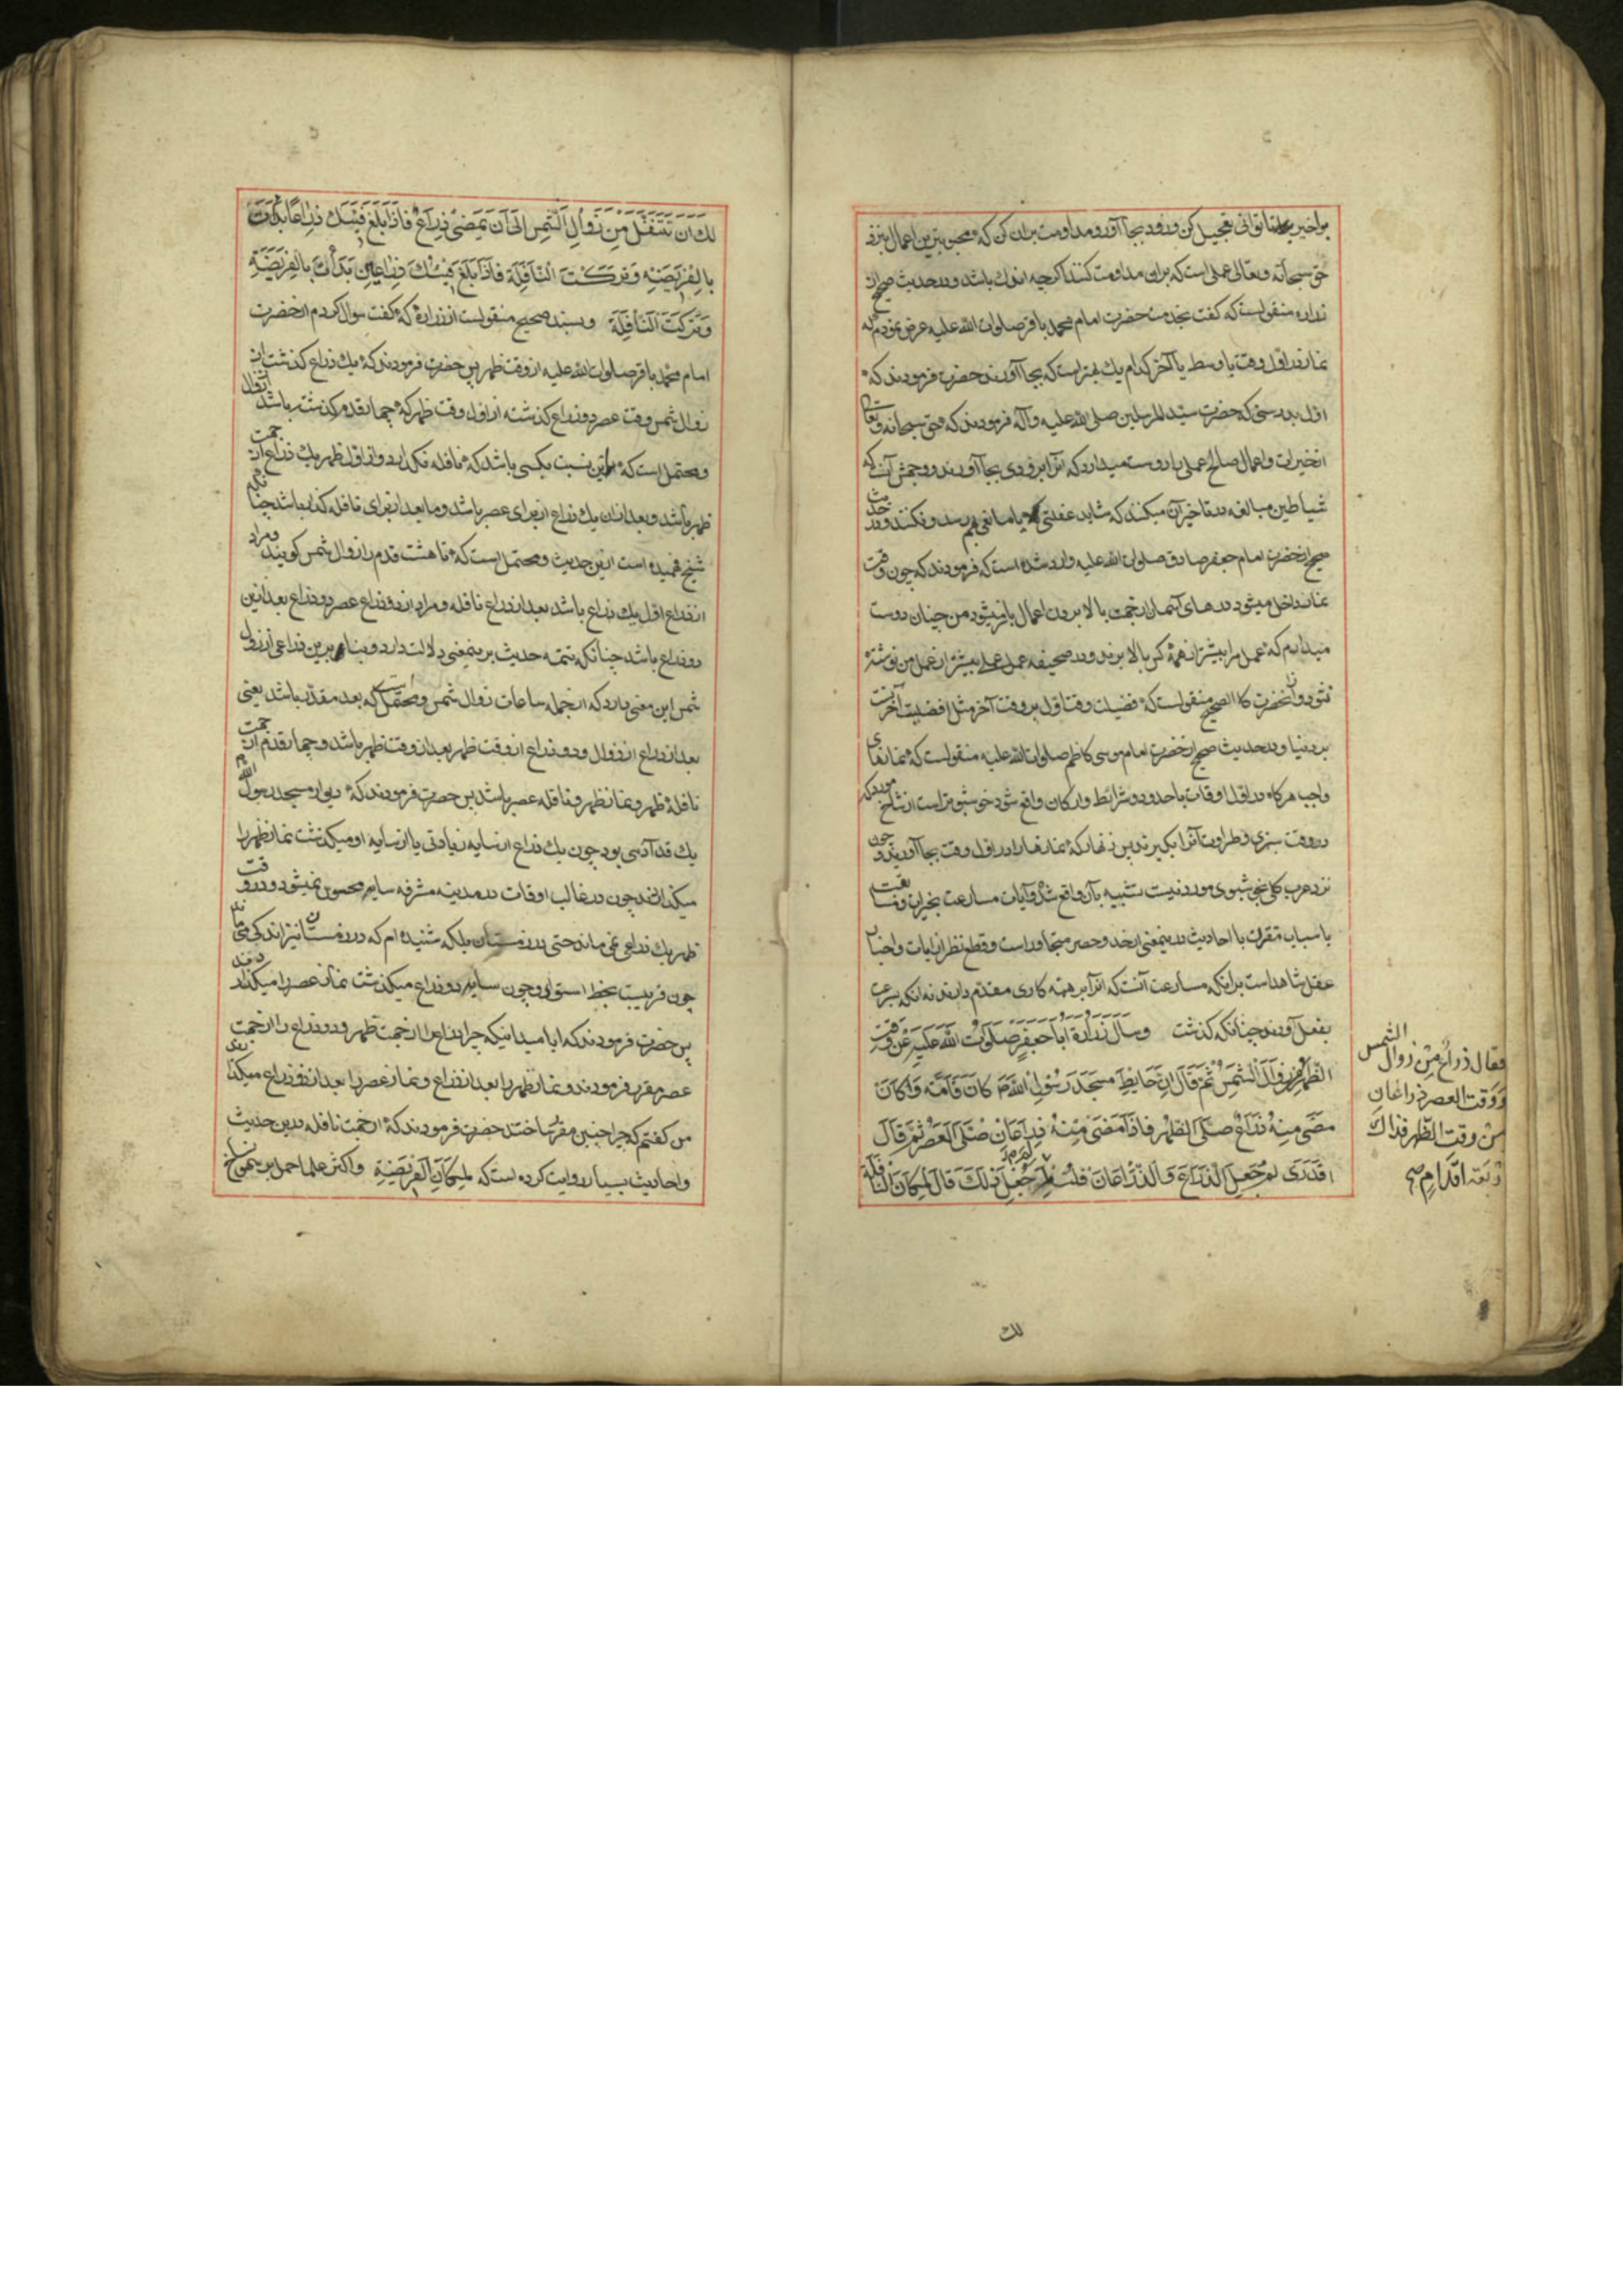 بر اخیر تا توانی تعجیل کن و زود بجا آور و مداومت بران کن که محبوبترین اعمال نزد
حق سبحانه و تعالی عملی است که بران مداومت کنند اکرچه اندك باشد و در حدیث صحیح از
زراره منقولست که کفت بخدمت حضرت امام محمد باقر صلوات الله علیه عرض نمودم که
نماز در اول وقت یا وسط یا آخر کدام یك بهتر است که بجا آورند حضرت فرمودند که
اول بدرستی که حضرت سید المرسلین صلی الله علیه وآله فرمودند که حق سبحانه وتعالی
از خیرات و اعمال صالح عملی را دوست میدارد که انرا بزودی بجا آورند و وجهش آنست که
شیاطین مبالغه در تاخیر آن میکنند که شاید غفلتی یا مانعی بهم رسد و نکنند و در حدیث
صحیح از حضرت امام جعفر صادق صلوات الله علیه وارد شده است که فرمودند که چون وقت
نماز داخل میشود درهای آسمان از جهت بالا بردن اعمال باز میشود من چنان دوست
میدارم که عمل مرا بیشتر از همه کس بالا برند و در صحیفه عمل عملی بیشتر از عمل من نوشته
نشود و از آنحضرت کالصحیح منقولست که فضیلت وقت اول بر وقت آخر مثل افضلیت آخرت
بر دنیا و در حدیث صحیح از حضرت امام موسی کاظم صلوات الله علیه منقولست که نمازهای
واجب هرکاه در اول اوقات با حدود و شرائط و ارکان واقع شود خوشبوتر است از شاخ مورد که
در وقت سبزی و طراوت آنرا بکیرند پس زنهار که نمازها را در اول وقت بجا آورید و چون
نزد عرب کلی بخوشبوی مورد نیست تشبیه بآن واقع شد و آیات مسارعت بخیرات و مسابقت
باسباب مقرت با احادیث در ینمعنی از حد و حصر متجاوز است و قطع نظر از ایات و اخبار
عقل شاهد است برانکه مسارعت آنست که انرا بر همه کاری مقدم دارند نه انکه بسرعت
بفعل آورند چنانکه کذشت وسال زرارة ابا جعفر صلوات الله علیه عن وقت
الظهر فقال ذراع من زوال الشمس ووقت العصر ذراعان من وقت الظهر فذاك اربعة اقدام صح
زوال الشمس ثم قال ان حایط مسجد رسول الله ص کان قامة وکان
مضی منه ذراع صلی الظهر فاذا مضی منه ذراعان صلی العصر ثم قال
اتدری لم جعل الذراع والذراعان قلت لم جعل ذلك قال لمکان النافلة
لك
لك ان تتنفل من زوال الشمس الی ان یمضی ذراع فاذا بلغ فیئك ذراعا بدأت
بالفریضة وترکت النافلة فاذا بلغ فیئك ذراعین بدأت بالفریضة
وترکت النافلة وبسند صحیح منقولست از زراره که کفت سوال کردم از حضرت
امام محمد باقر صلوات الله علیه از وقت ظهر پس حضرت فرمودند که یك ذراع کذشتن از
زوال شمس وقت عصر دو ذراع کذشته از اول وقت ظهر که چهار قدم کذشته باشد از زوال
و محتمل است که این نسبت بکسی باشد که نافله نکذارد و از اول ظهر یك ذراع از جهت
ظهر باشد و بعد از ان یك ذراع از برای عصر باشد و مابعد از برای نافله کذار باشد چنانکه
شیخ فهمیده است ازین حدیث و محتمل است که تا هشت قدم را زوال شمس کویند و مراد
از ذراع اول یك ذراع باشد بعد از ذراع نافله و مراد از دو ذراع عصر دو ذراع بعد ازین
دو ذراع باشد چنانکه تتمه حدیث بر ینمعنی دلالت دارد و بنا برین ذراعی از زوال
شمس این معنی دارد که از جمله ساعات زوال شمس و محتمل است که بعد مقدر باشد یعنی
بعد از ذراع از زوال و دو ذراع از وقت ظهر بعد از وقت ظهر باشد و چهار قدم از جهت
نافله ظهر و نماز ظهر و نافله عصر باشد پس حضرت فرمودند که دیوار مسجد رسول الله ص
یك قد آدمی بود چون یك ذراع از سایه زیادتی یا از سایه او میکذشت نماز ظهر را
میکذاردند چون در غالب اوقات در مدینه مشرفه سایه محسوس نمیشود و در وقت
ظهر یك ذراعی نمی ماند حتی در زمستان بلکه شنیده ام که در زمستان نیز اندکی می ماند
چون قریبست بخط استوا و چون سایه دو ذراع میکذشت نماز عصر را میکذاردند
پس حضرت فرمودند که ایا میدانیکه چرا ذراع را از جهت ظهر و دو ذراع را از جهت
عصر مقرر فرمودند و نماز ظهر را بعد از ذراع و نماز عصر را بعد از دو ذراع میکذاردند
من کفتم که چرا چنین مقرر ساختند حضرت فرمودند که از جهت نافله و درین حدیث
و احادیث بسیار روایت کرده است که لمکان الفریضة و اکثر علما حمل بر سهو نساخ